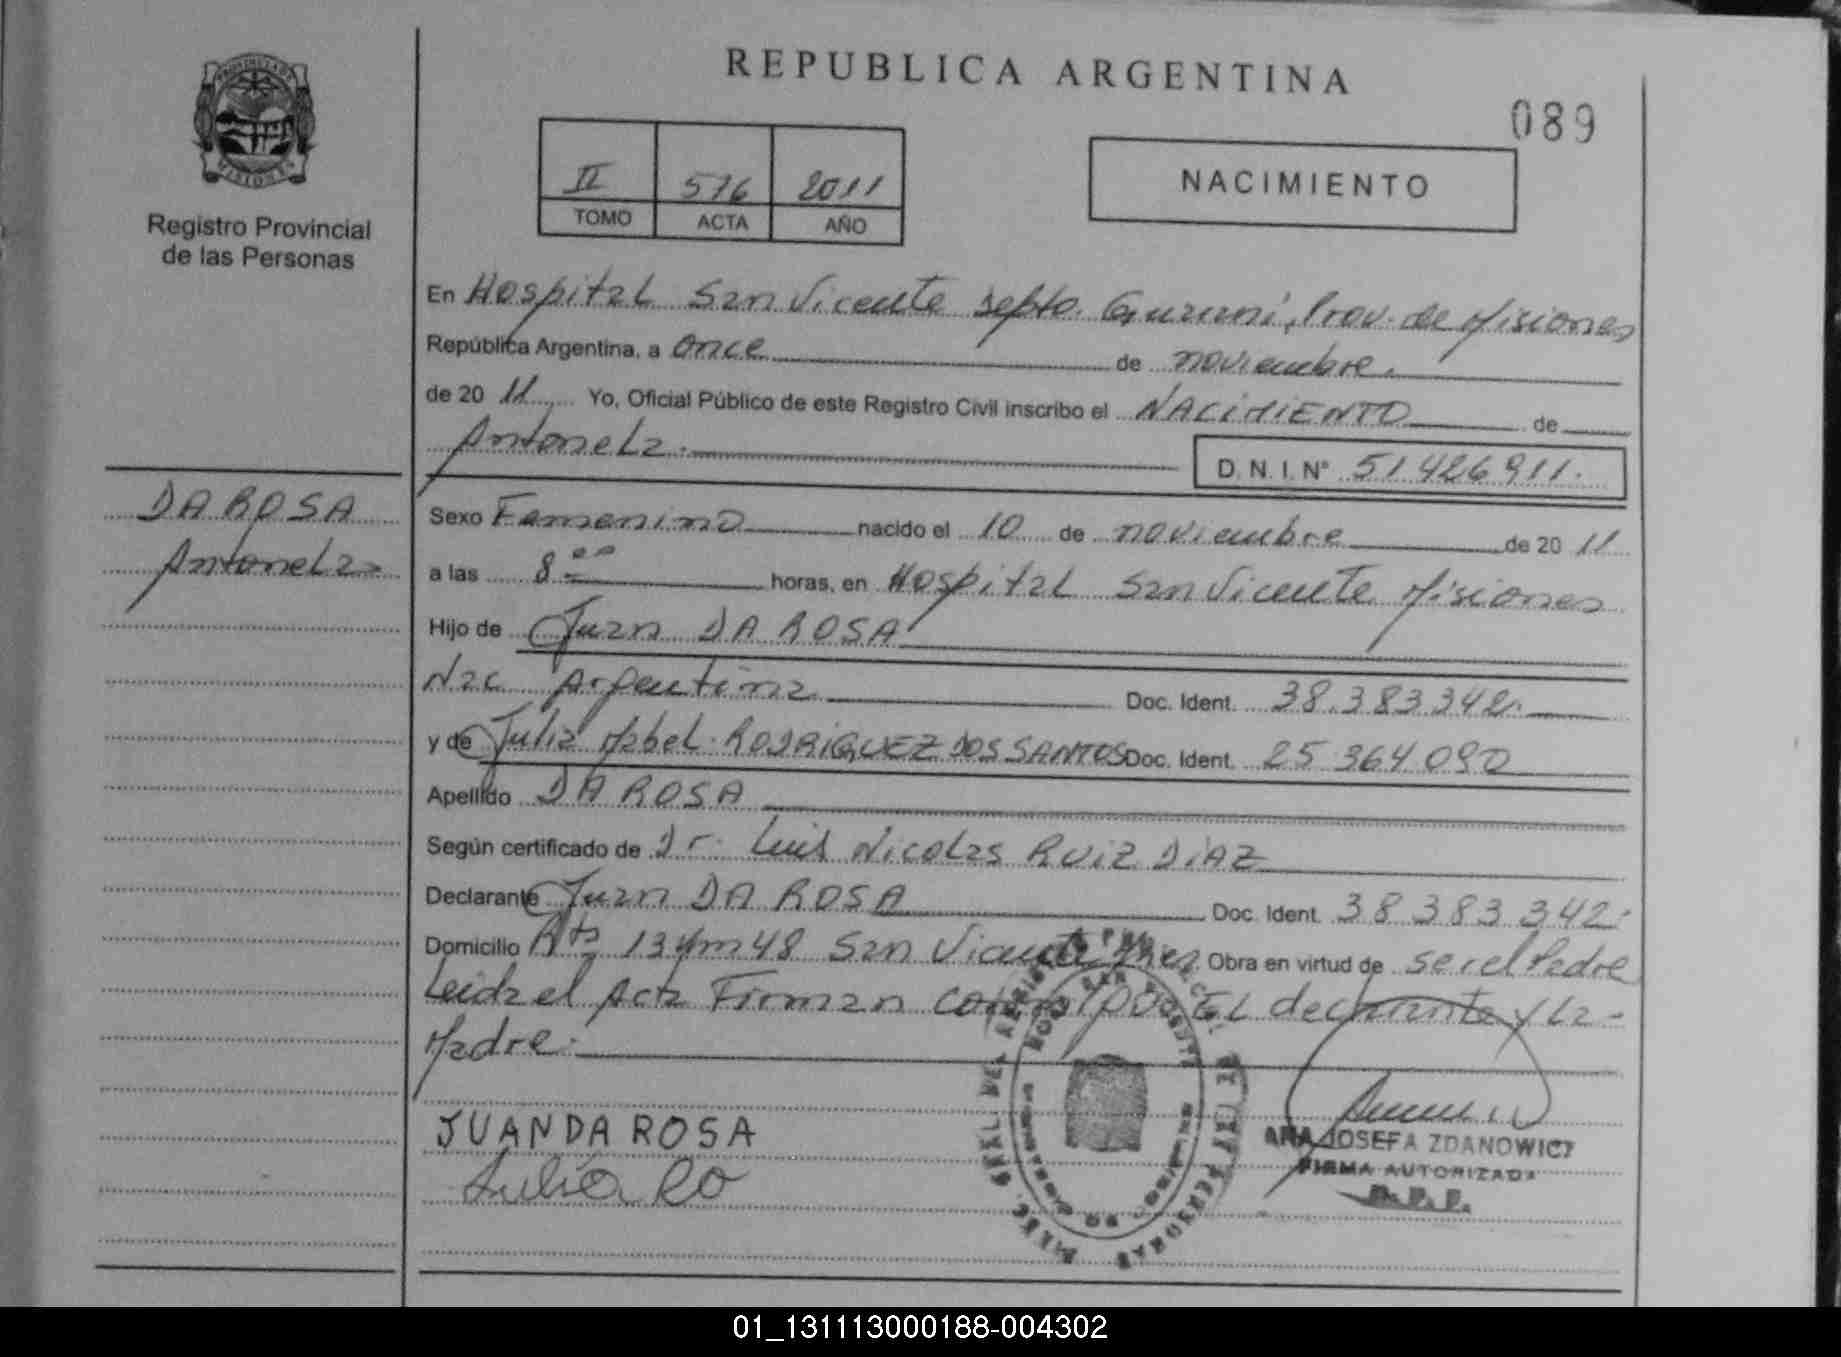 REPUBLICA ARGENTINA
089
PROVINCIA DE MISIONES
Registro Provincial
de las Personas
II 576 2011
TOMO ACTA AÑO
NACIMIENTO
En Hospital San Vicente Depto. Guaraní, Prov. de Misiones
República Argentina, a once de noviembre.
de 20 11 Yo, Oficial Público de este Registro Civil inscribo el NACIMIENTO de
Antonela. D. N. I. Nº 51 426 911.
DA ROSA
Antonela
Sexo Femenino nacido el 10 de noviembre de 20 11
a las 8 00 horas, en Hospital San Vicente Misiones
Hijo de Juan DA ROSA
Nac Argentina Doc. Ident. 38.383.342.
y de Julia Mabel RODRIGUEZ DOS SANTOS Doc. Ident. 25 364 090
Apellido DA ROSA
Según certificado de Dr. Luis Nicolas RUIZ DIAZ
Declarante Juan DA ROSA Doc. Ident. 38 383 342.
Domicilio Km 48 San Vicente Mnes. Obra en virtud de ser el Padre
Leida el Acta Firman conmigo EL declarante y La-
Madre.
JUAN DA ROSA
Julia Ro
ANA JOSEFA ZDANOWICZ
FIRMA AUTORIZADA
R.P.P.
01_131113000188-004302